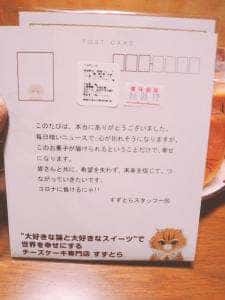 POST CARD
このたびは、本当にありがとうございました。
毎日暗いニュースで心が折れそうになりますが、
このお菓子が届けられるということだけで、幸せ
になります。
皆さんと共に、希望を失わず、未来を信じて、つ
ながっていきたいです。
コロナに負けるにゃ!!
すずとらスタッフ一同
"大好きな猫と大好きなスイーツ"で
世界を幸せにする
チーズケーキ専門店 すずとら